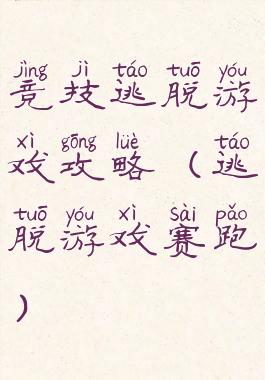 jìng jì táo tuō yóu
竞技逃脱游
xì gōng lüè táo
戏攻略（逃
tuō yóu xì sài pǎo
脱游戏赛跑
）